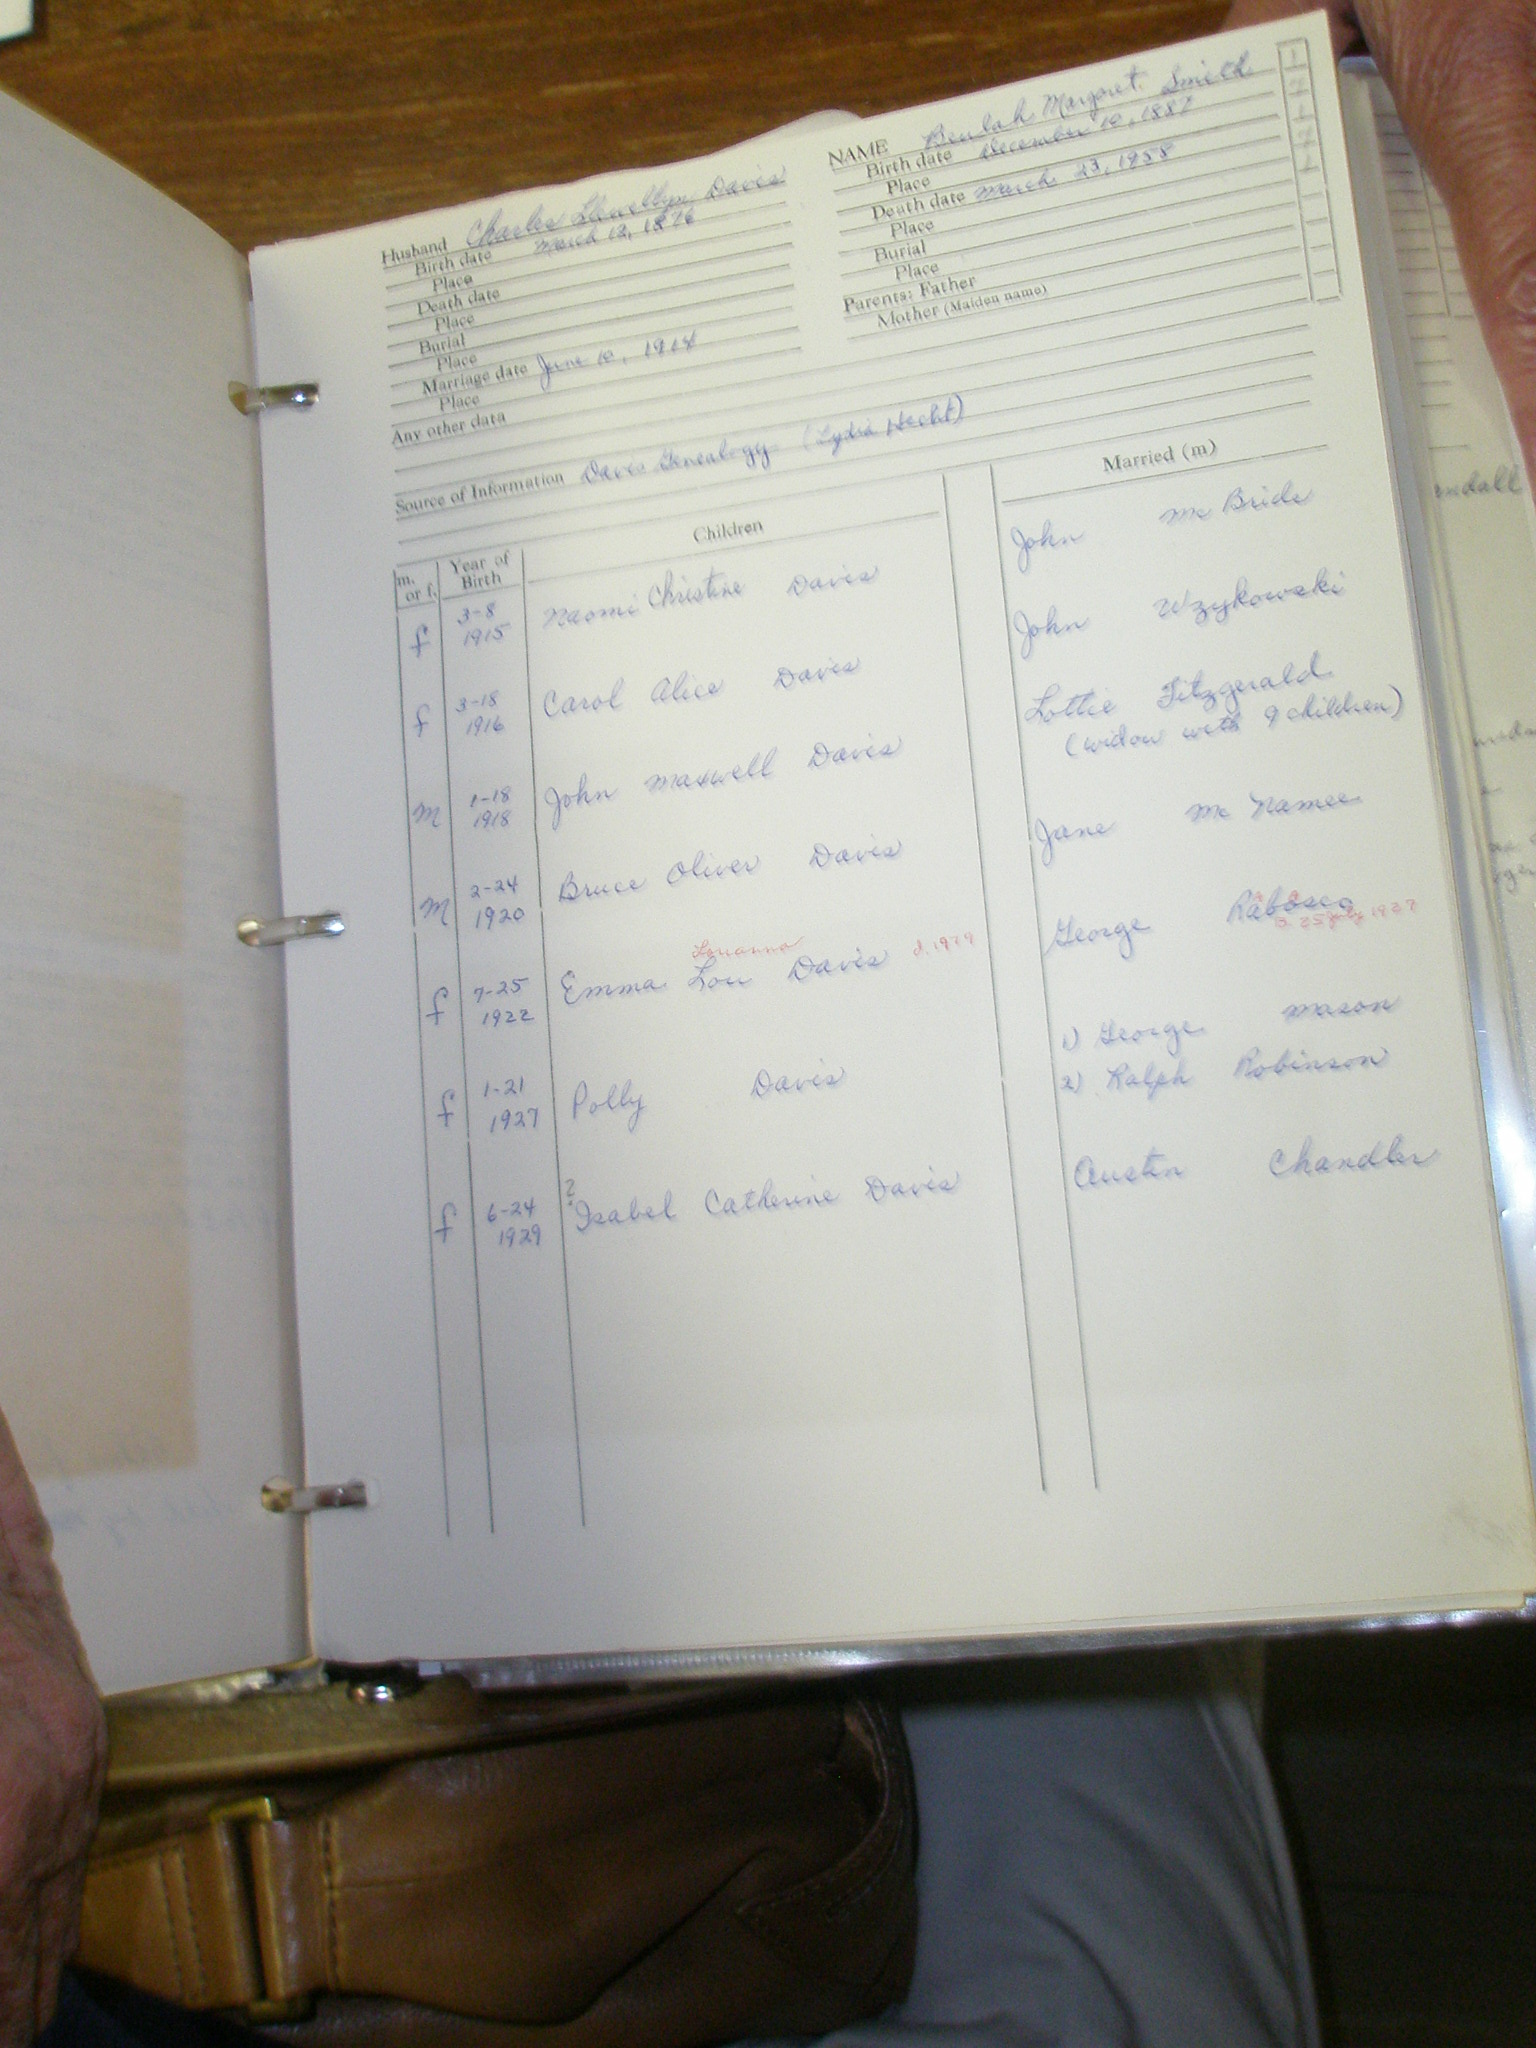 Husband Charles Llewellyn Davis
Birth date March 12, 1876
Place
Death date
Place
Burial
Place
Marriage date June 10, 1914
Place
Any other data
NAME Beulah Margret Smith
Birth date December 10, 1887
Place
Death date March 23, 1958
Place
Burial
Place
Parents: Father
Mother (Maiden name)
1
7
1
7
1
Source of Information Davis Genealogy (Lydia Hecht)
m. or f.
Year of Birth
Children
Married (m)
f 3-8 1915 Naomi Christine Davis John McBride
f 3-18 1916 Carol Alice Davis John Wzykowski
M 1-18 1918 John Maxwell Davis Lottie Fitzgerald
(widow with 9 children)
M 2-24 1920 Bruce Oliver Davis Jane McNamee
Louanna
f 7-25 1922 Emma Lou Davis d. 1979 George
25 July 1937
f 1-21 1927 Polly Davis 1) George Mason
2) Ralph Robinson
?
f 6-24 1929 Isabel Catherine Davis Austin Chandler